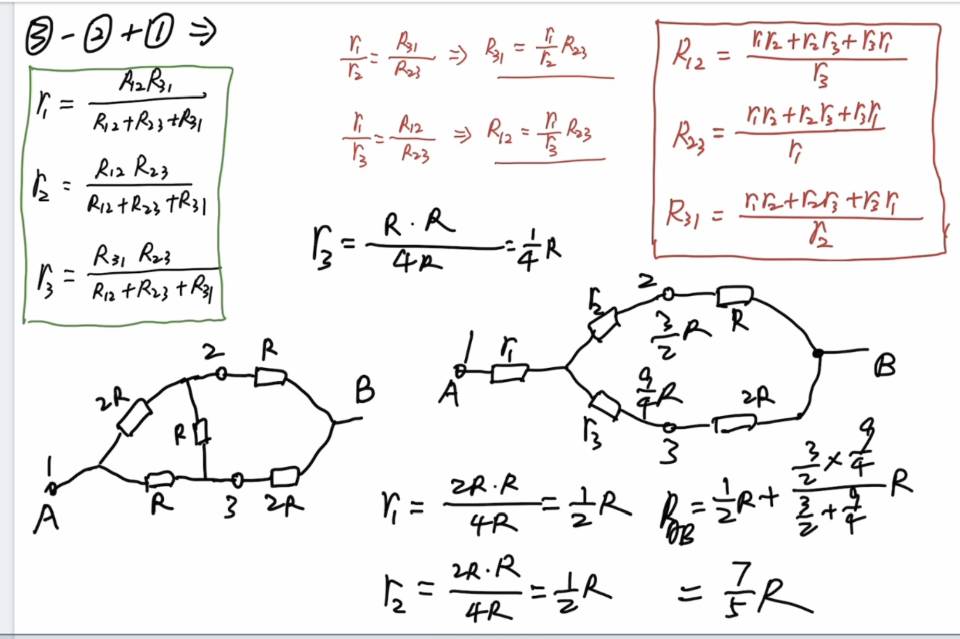 ③ - ② + ① ⇒
r₁ = R₁₂R₃₁ / (R₁₂+R₂₃+R₃₁)
r₂ = R₁₂ R₂₃ / (R₁₂+R₂₃+R₃₁)
r₃ = R₃₁ R₂₃ / (R₁₂+R₂₃+R₃₁)
r₁/r₂ = R₃₁/R₂₃ ⇒ R₃₁ = r₁/r₂ R₂₃
r₁/r₃ = R₁₂/R₂₃ ⇒ R₁₂ = r₁/r₃ R₂₃
R₁₂ = (r₁r₂+r₂r₃+r₃r₁) / r₃
R₂₃ = (r₁r₂+r₂r₃+r₃r₁) / r₁
R₃₁ = (r₁r₂+r₂r₃+r₃r₁) / r₂
r₃ = R·R / 4R = 1/4 R
2 R
2R
R
B
1
A
R 3 2R
2
r₂
R
3/2 R
1
r₁
A
B
9/4 R
r₃
2R
3
r₁ = 2R·R / 4R = 1/2 R
r₂ = 2R·R / 4R = 1/2 R
R_AB = 1/2 R + (3/2 × 9/4) / (3/2 + 9/4) R
= 7/5 R